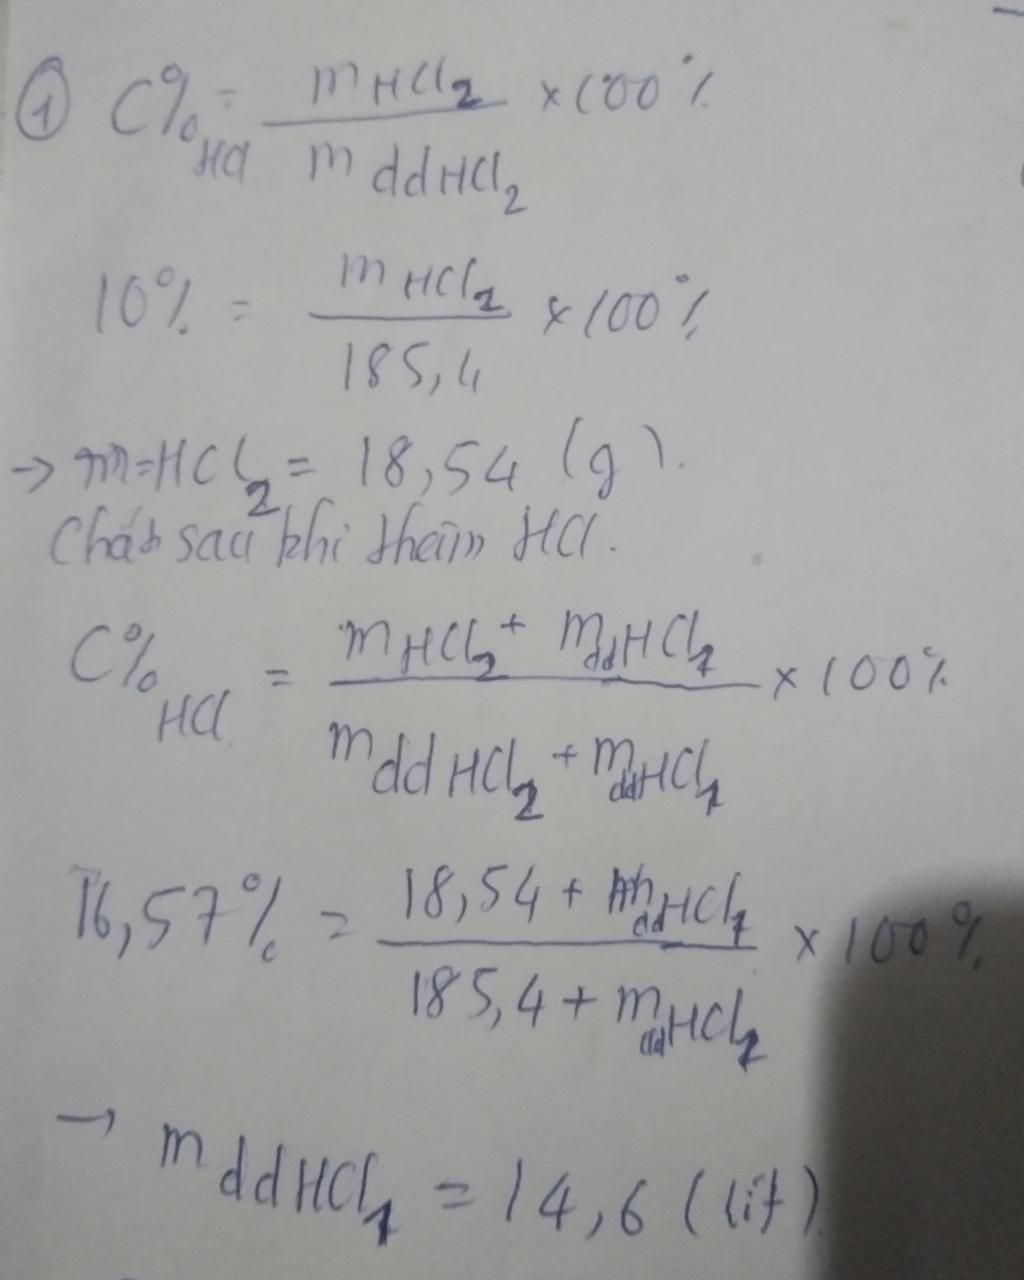 ① C%HCl = mHCl2 / mddHCl2 × 100%
10% = mHCl2 / 185,4 × 100%
→ m=HCl2 = 18,54 (g).
Chất sau khi thêm HCl.
C%HCl = mHCl2 + mddHCl1 / mddHCl2 + mddHCl1 × 100%
16,57% = 18,54 + mddHCl1 / 185,4 + mddHCl1 × 100%
→ mddHCl1 = 14,6 (lít)